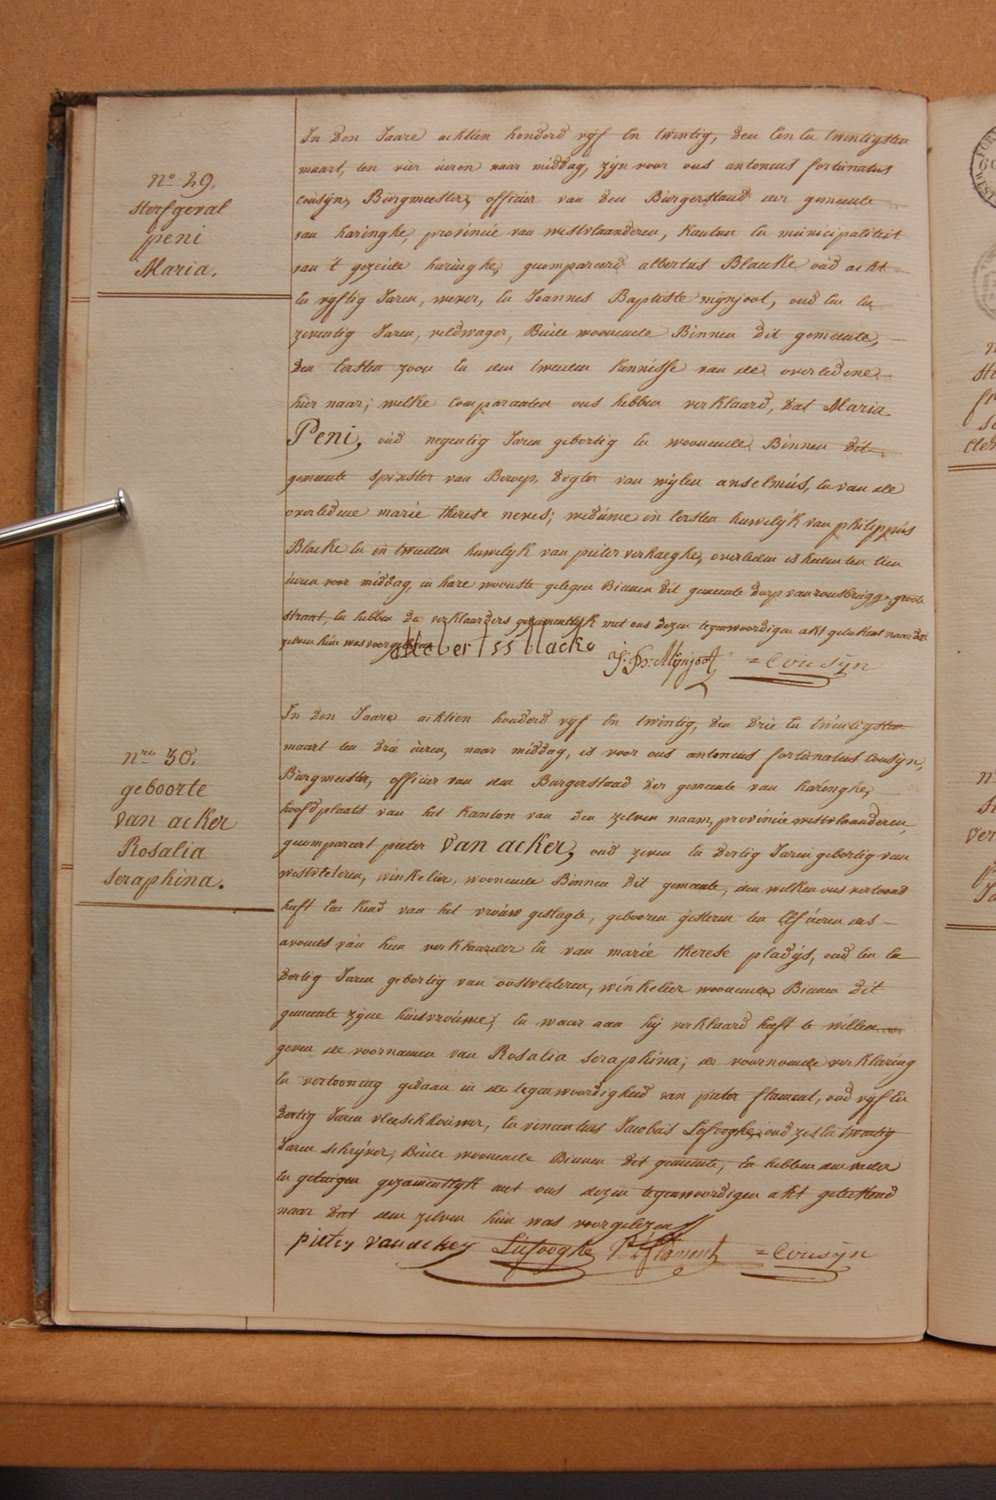 nº 29.
Sterfgeval
peni
Maria.
In den Jaare achtien honderd vyf en twintig, den een en twintigsten
maart, ten vier uren naar middag, zijn voor ons antonius fortunatus
cousÿn, Burgmeester, officier van den Burgerstand der gemeente
van haringhe, provincie van westvlaanderen, kanton en municipaliteit
van 't gezeide haringhe, gecompareerd albertus Blaeke oud acht
en vyftig Jaren, wever, en Joannes Baptiste mijnjoot, oud een en
zeventig Jaren, veldwagter, Beide woonende Binnen dit gemeente,
den Eersten zoon en den tweeden kennisse van de overledene
hier naar; welke Comparanten ons hebben verklaard, dat Maria
Peni, oud negentig Jaren gebortig en woonende Binnen dit
gemeente spinster van Beroep, Dogter van wijlen anselmus, en van de
overledene marie therese neves; weduwe in Eersten huwelÿk van philippus
Blaeke en in tweeden huwelyk van pieter verhaeghe, overleden is heden ten tien
uren voor middag, in hare woonste gelegen Binnen dit gemeente dorp van rousbrugge groote
straat, en hebben de verklaarders gezamentlyk met ons dezen tegenwoordigen akt geteekent naer dat
zelven hun was voorgelezen
albertss Blacke J: Bte Mijnjoot = Cousÿn
nro 30.
geboorte
van acker
Rosalia
Seraphina.
In Den Jaare achtien honderd vyf en twintig, den drie en twintigsten
maart ten drie uren, naar middag, is voor ons antonius fortunatus Cousÿn,
Burgmeester, officier van den Burgerstaad der gemeente van haringhe,
hoofdplaats van het kanton van den zelven naam, provincie westvlaanderen,
gecompareert pieter van acker, oud zeven en dertig Jaren gebortig van
westvleteren, winkelier, woonende Binnen dit gemeente, den welken ons vertoond
heeft Een kind van het vrouw geslagte, geboren gisteren ten elf uren des
avonds van hem verklaarder en van marie therese pladÿs, oud een en
dertig Jaren gebortig van oostvleteren, winkelier woonende Binnen dit
gemeente zijne huisvrouwe, en waar aan hÿ verklaard heeft te willen
geven de voornamen van Rosalia Seraphina; de voornoemde verklaring
en vertooning gedaan in de tegenwoordigheid van pieter flament, oud vyf en
dertig Jaren vleeschhouwer, en vincentius Jacobus Lefooghe, oud zes en twentig
Jaren schrÿver, Beide woonende Binnen dit gemeente, en hebben den vader
en getuigen gezamentlÿk met ons dezen tegenwoordigen akt geteekend
naar dat den zelven hun was voorgelezen
pieter vanacker Lefooghe P: flament = Cousÿn